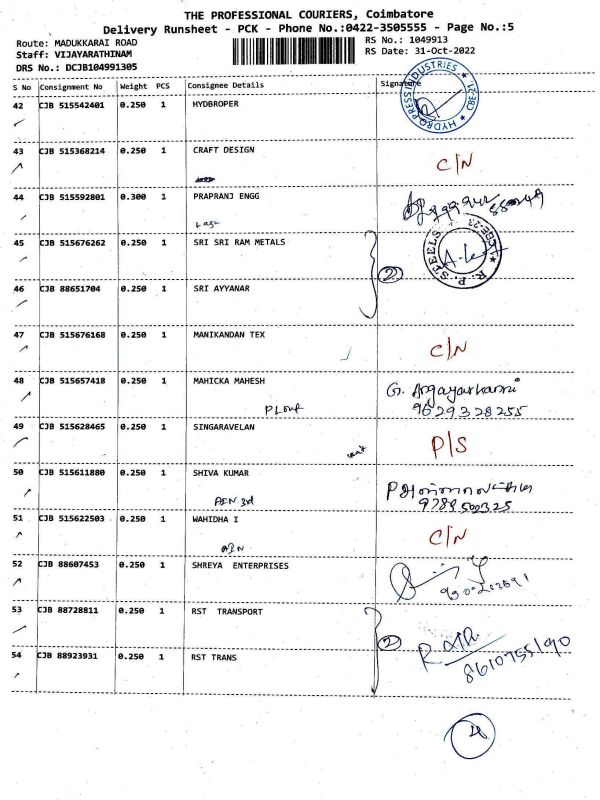 THE PROFESSIONAL COURIERS, Coimbatore
Delivery Runsheet - PCK - Phone No.:0422-3505555 - Page No.:5
Route: MADUKKARAI ROAD RS No.: 1049913
Staff: VIJAYARATHINAM RS Date: 31-Oct-2022
DRS No.: DCJB104991305
S No Consignment No Weight PCS Consignee Details Signature
42 CJB 515542401 0.250 1 HYDBROPER
HYDRO PRESS INDUSTRIES CBE-21
43 CJB 515368214 0.250 1 CRAFT DESIGN C/N
44 CJB 515592801 0.300 1 PRAPRANJ ENGG
45 CJB 515676262 0.250 1 SRI SRI RAM METALS
R.P. STEELS
2
46 CJB 88651704 0.250 1 SRI AYYANAR
47 CJB 515676168 0.250 1 MANIKANDAN TEX C/N
48 CJB 515657418 0.250 1 MAHICKA MAHESH G. Angayarkanni
9629328255
49 CJB 515628465 0.250 1 SINGARAVELAN P/S
50 CJB 515611880 0.250 1 SHIVA KUMAR
3rd
51 CJB 515622503 0.250 1 WAHIDHA I C/N
52 CJB 88607453 0.250 1 SHREYA ENTERPRISES
53 CJB 88728811 0.250 1 RST TRANSPORT
2
8610755190
54 CJB 88923931 0.250 1 RST TRANS